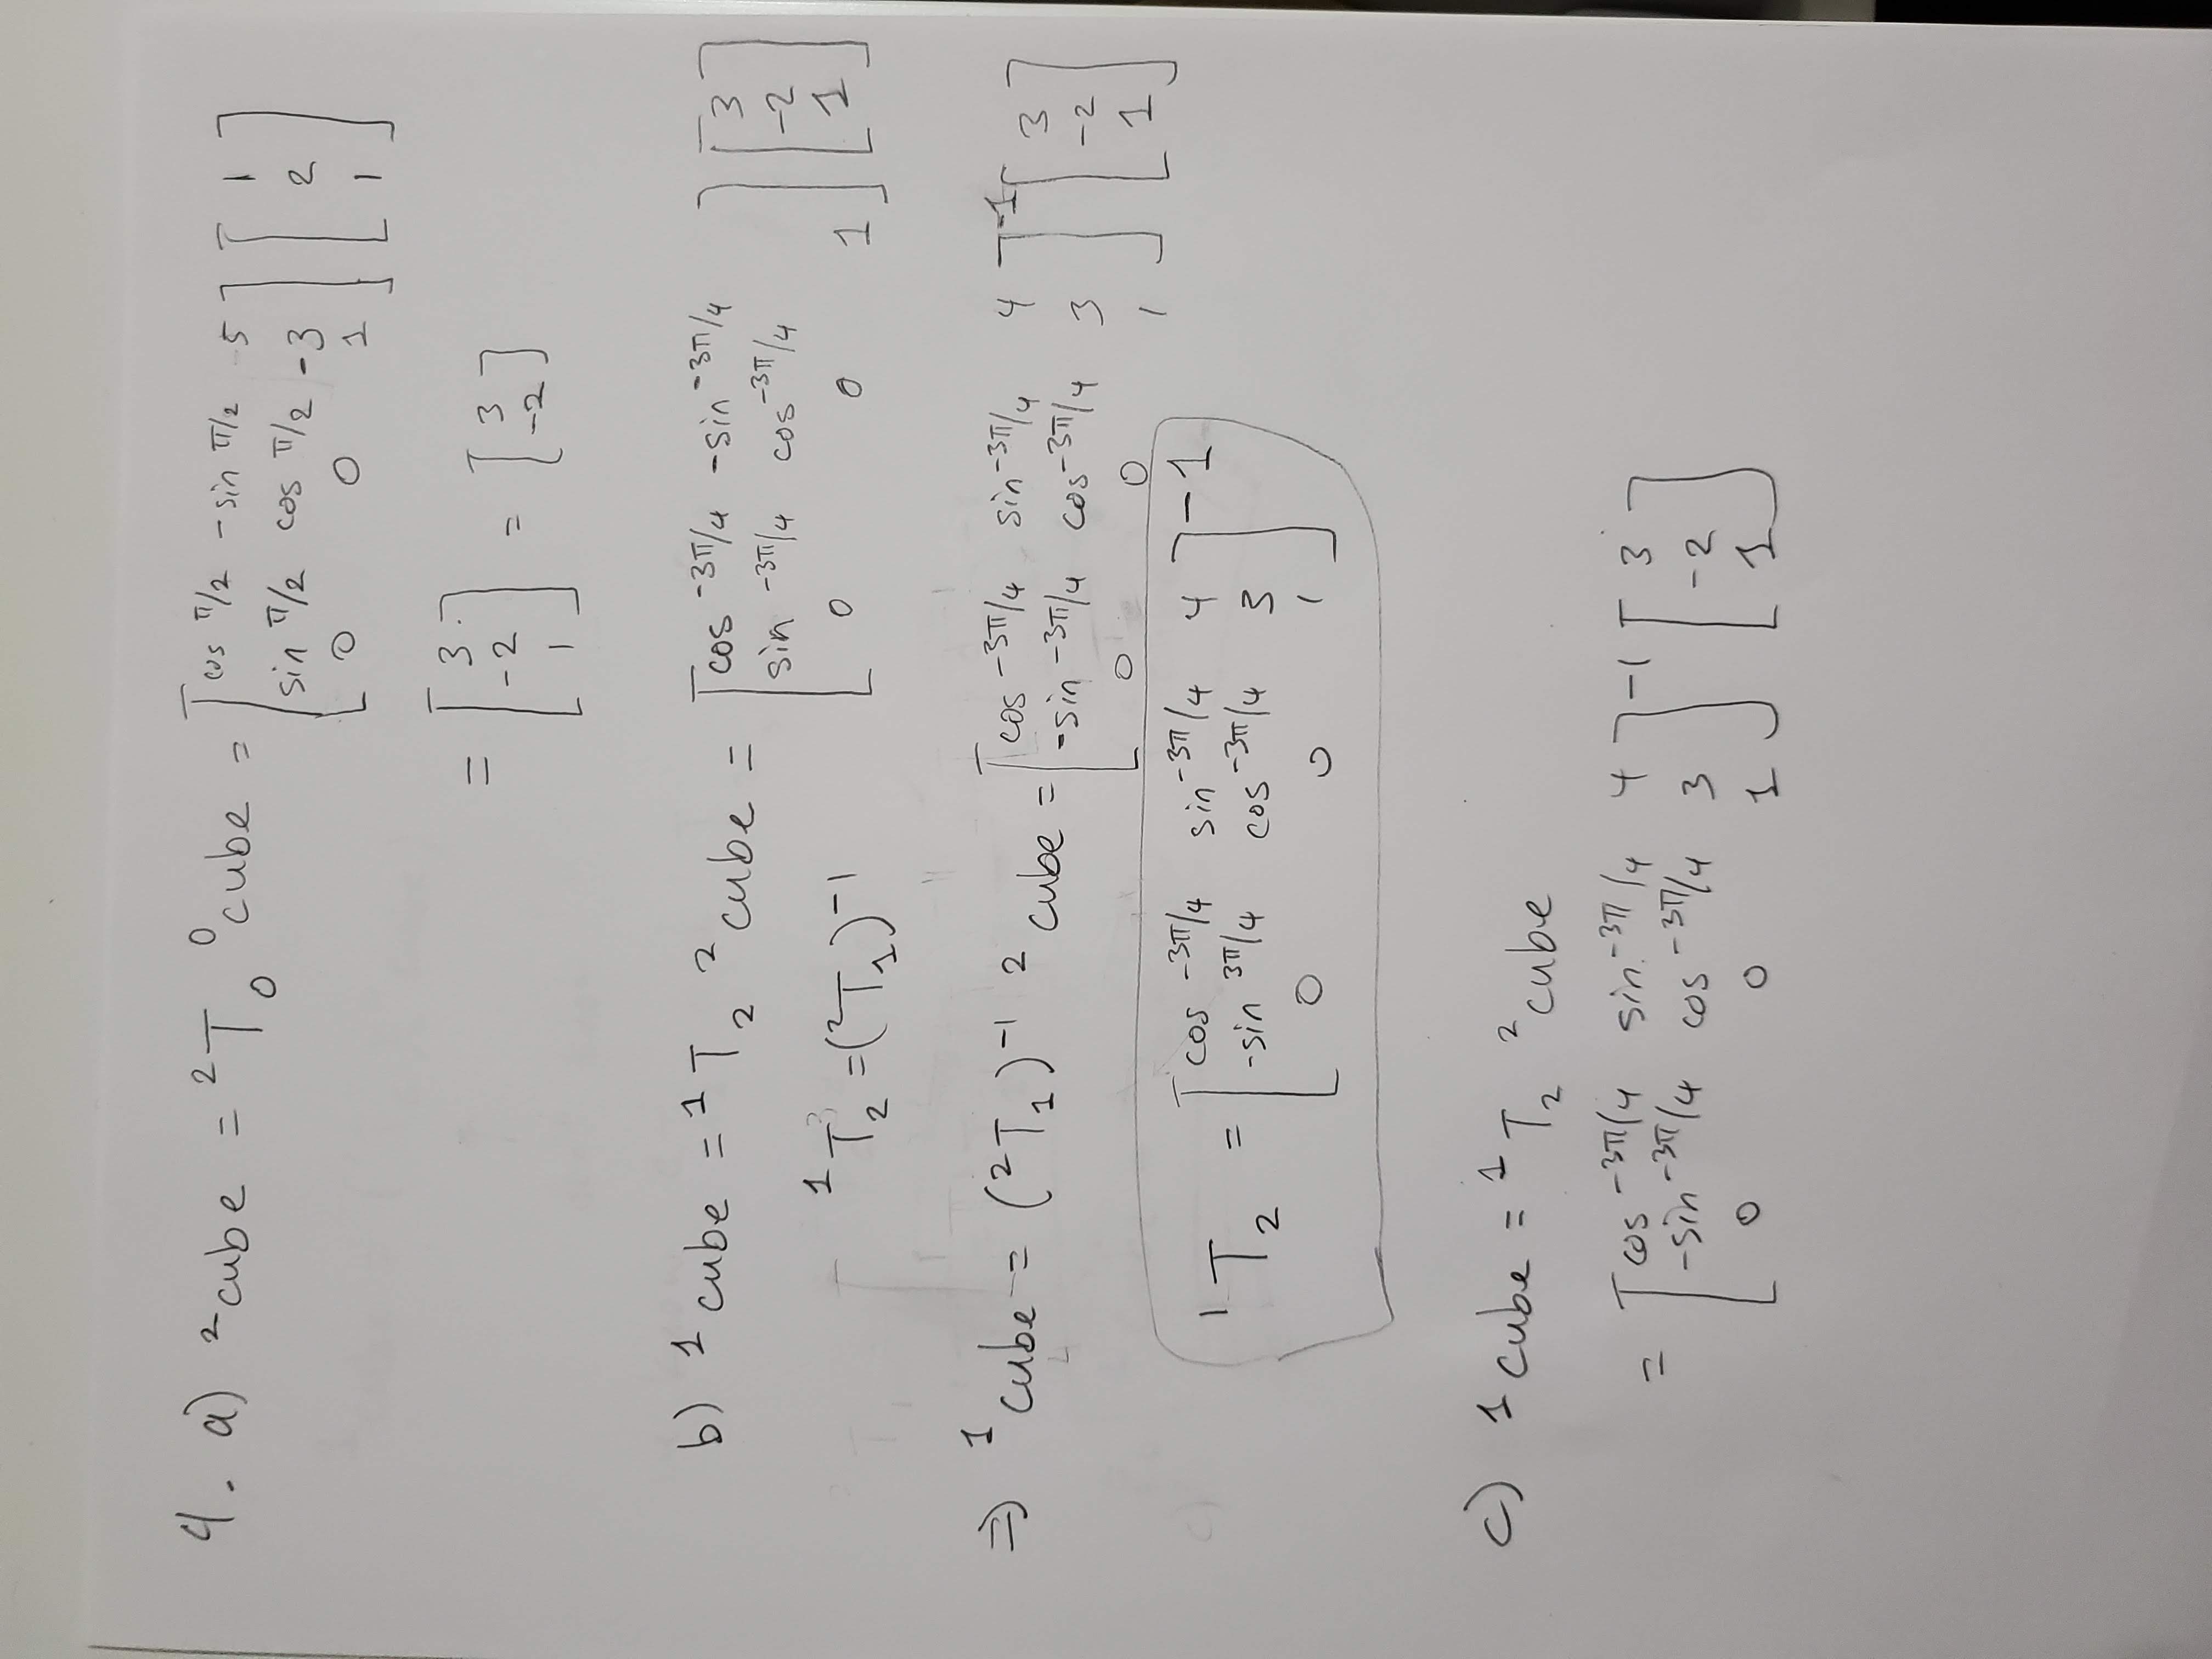 4. a) ²cube = ²T₀ ⁰cube = [cos π/2 -sin π/2 5] [1]
[sin π/2 cos π/2 -3] [2]
[0 0 1] [1]
= [3] = [3]
[-2] [-2]
[1]
b) ¹cube = ¹T₂ ²cube = [cos -3π/4 -sin -3π/4] [3]
[sin -3π/4 cos -3π/4] [-2]
[0 0 1] [1]
¹T₂ = (²T₁)⁻¹
⇒ ¹cube = (²T₁)⁻¹ ²cube = [cos -3π/4 sin -3π/4 4]⁻¹ [3]
[-sin -3π/4 cos -3π/4 3] [-2]
[0 0 1] [1]
¹T₂ = [cos -3π/4 sin -3π/4 4]⁻¹
[-sin 3π/4 cos -3π/4 3]
[0 0 1]
c) ¹cube = ¹T₂ ²cube
= [cos -3π/4 sin -3π/4 4]⁻¹ [3]
[-sin -3π/4 cos -3π/4 3] [-2]
[0 0 1] [1]